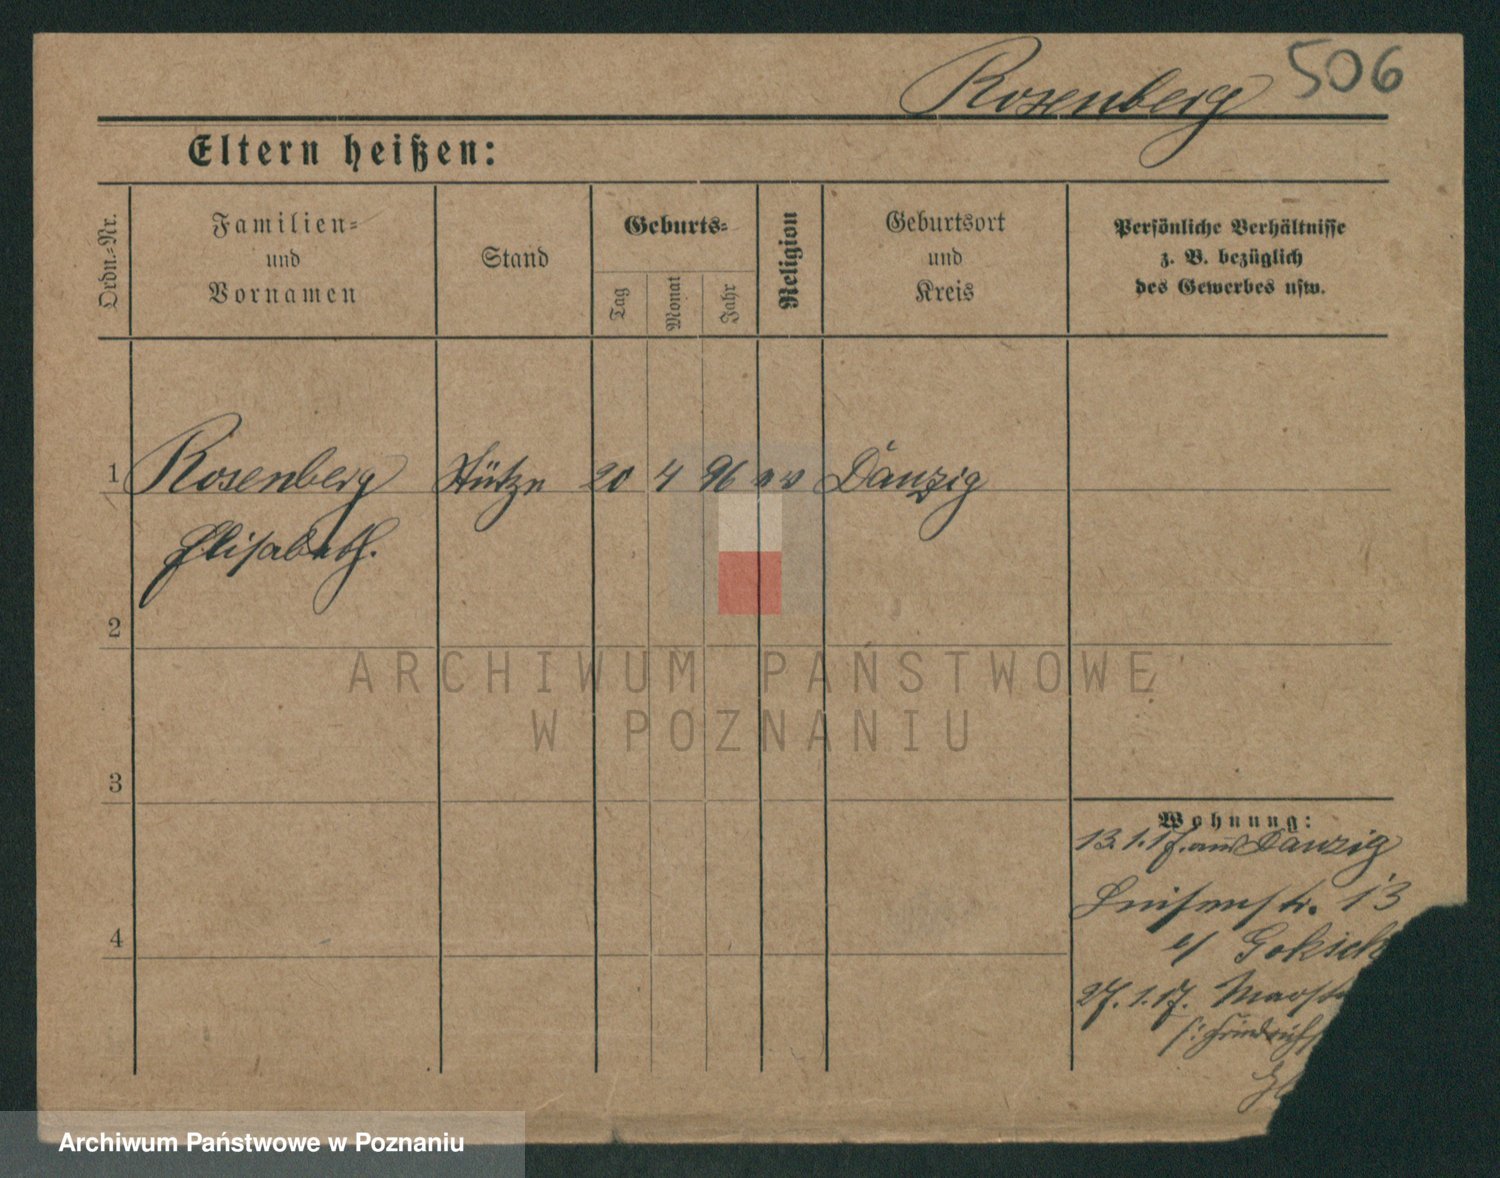 Rosenberg 506
Eltern heißen:
Ordn.-Nr.
Familien-
und
Vornamen
Stand
Geburts-
Tag
Monat
Jahr
Religion
Geburtsort
und
Kreis
Persönliche Verhältnisse
z. B. bezüglich
des Gewerbes usw.
1 Rosenberg Stütze 20 4 96 ev Danzig
Elisabeth.
2
3
4
Wohnung:
13.1.17. aus Danzig
Luisenstr. 13
b/ Gokisch
27.1.17.
ARCHIWUM PAŃSTWOWE
W POZNANIU
Archiwum Państwowe w Poznaniu